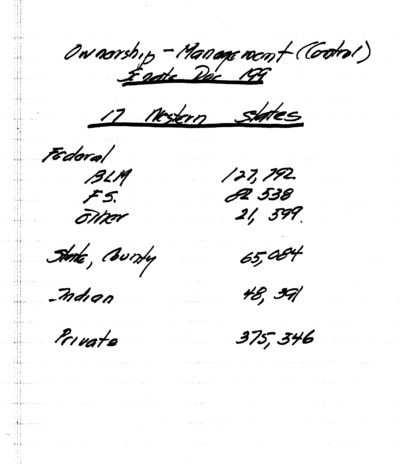 Ownership - Management (Control)
Senate Doc 199
17 Western States
Federal
BLM 127,792
F.S. 82 538
Other 21, 399.
State, County 65,084
Indian 48, 391
Private 375,346